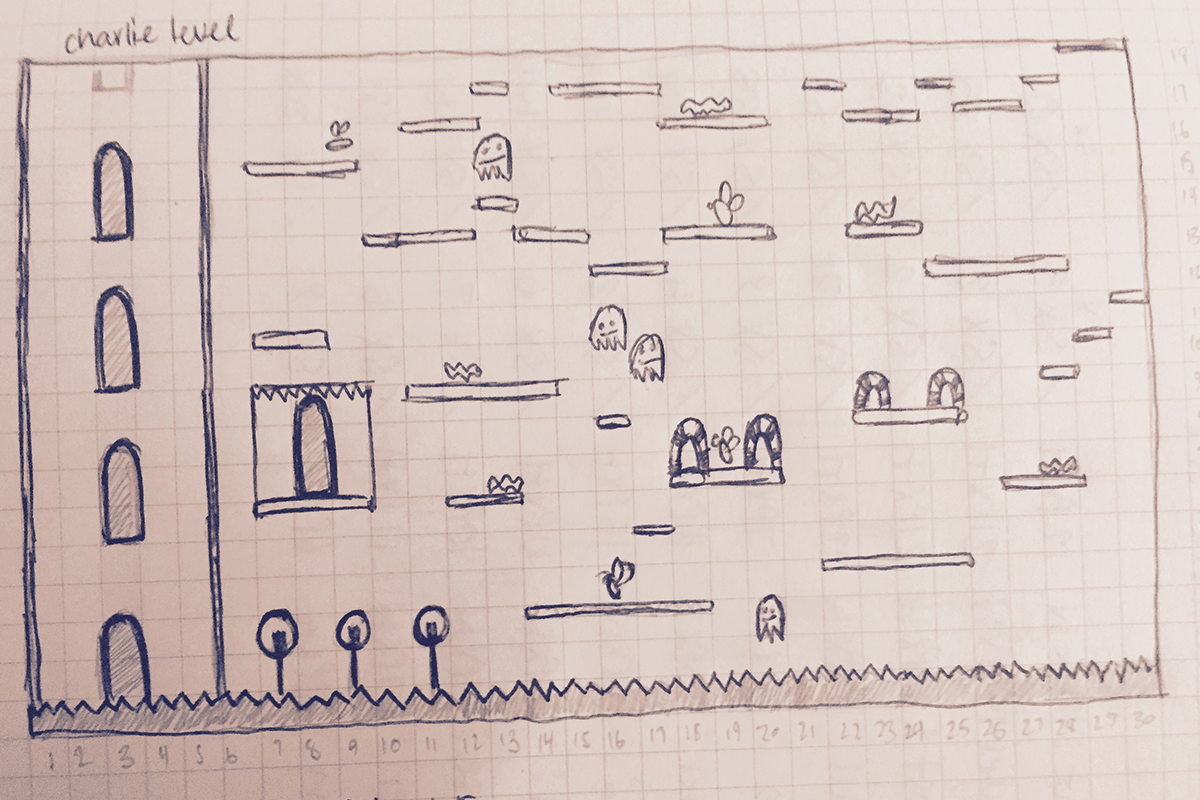 charlie level
18
17
16
15
14
13
12
1 2 3 4 5 6 7 8 9 10 11 12 13 14 15 16 17 18 19 20 21 22 23 24 25 26 27 28 29 30